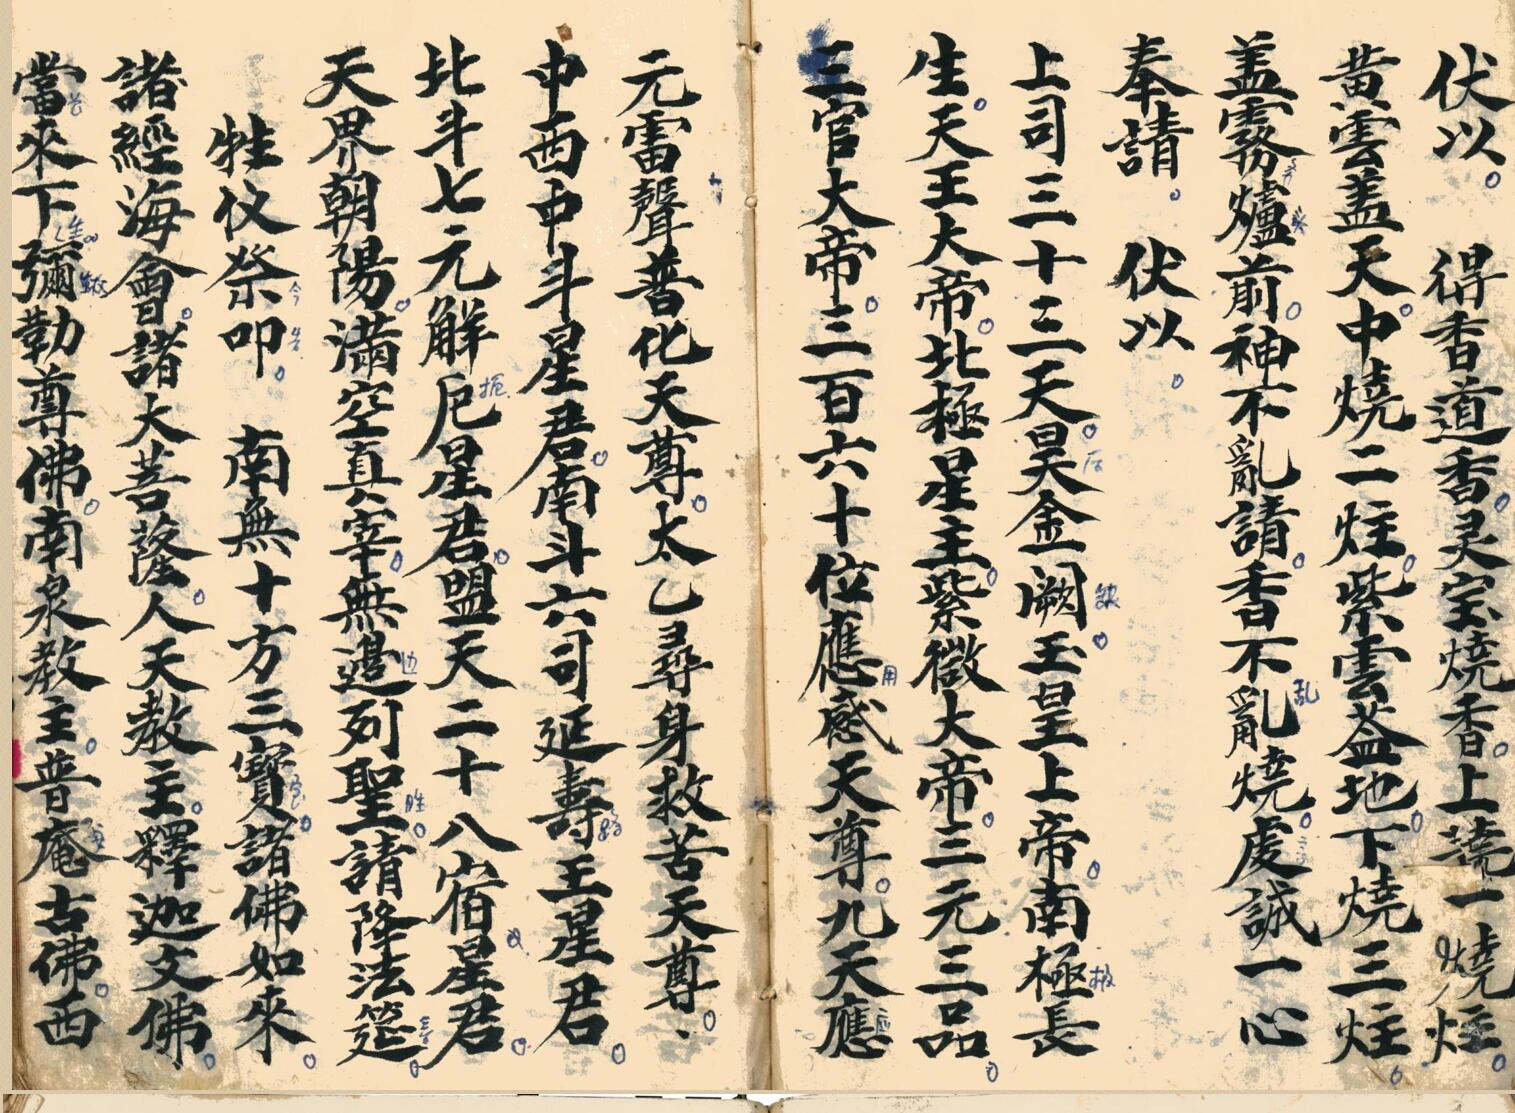 伏以。　得香道香。灵宝燒香。上燒一燒炷。
黄雲盖天。中燒二炷。紫雲盖地。下燒三炷。
盖霧爐前。神不亂請。香不亂燒。虔誠一心
奉請。　伏以。
上司三十三天。昊金闕。玉皇上帝。南極長
生。天王大帝。北極星主。紫微大帝。三元三品。
三官大帝。三百六十位應感天尊。九天應
元雷聲普化天尊。太乙尋身救苦天尊。
中西中斗星君。南斗六司延壽王星君。
北斗七元解厄星君。盟天二十八宿星君。
天界朝陽。滿空真宰。無邊列聖。請降法筵。
牲仪祭叩。　南無十方三寶。諸佛如來。
諸經海會。諸大菩薩。人天教主。釋迦文佛。
當來下生。彌勒尊佛。南泉教主。普庵古佛。西